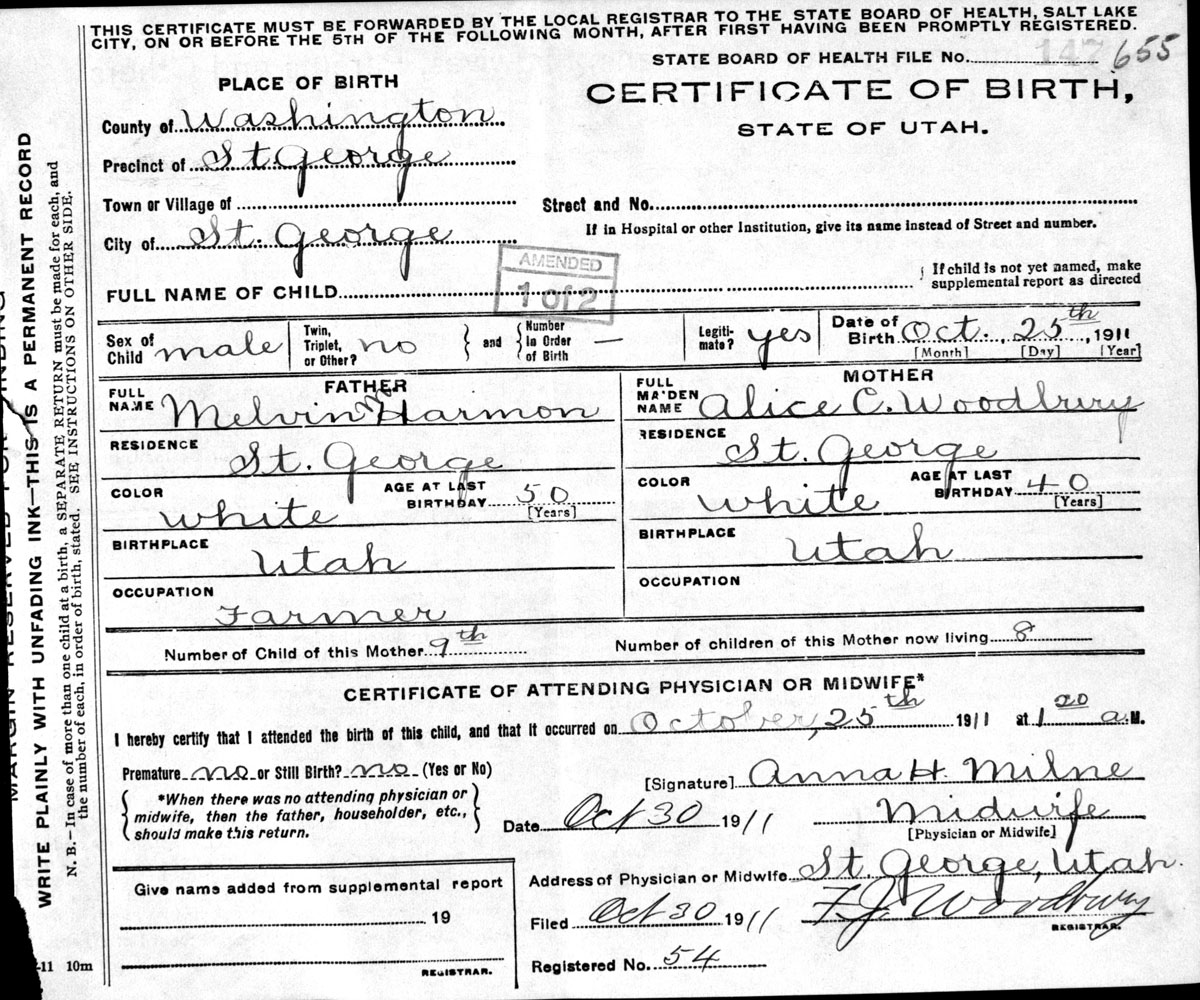 THIS CERTIFICATE MUST BE FORWARDED BY THE LOCAL REGISTRAR TO THE STATE BOARD OF HEALTH, SALT LAKE
CITY, ON OR BEFORE THE 5TH OF THE FOLLOWING MONTH, AFTER FIRST HAVING BEEN PROMPTLY REGISTERED.
STATE BOARD OF HEALTH FILE No. 147 655
PLACE OF BIRTH
CERTIFICATE OF BIRTH,
STATE OF UTAH.
County of Washington
Precinct of St George
Town or Village of
Street and No.
City of St. George
If in Hospital or other Institution, give its name instead of Street and number.
AMENDED
1 of 2
FULL NAME OF CHILD
If child is not yet named, make
supplemental report as directed
Sex of Child male
Twin, Triplet, or Other? no
and Number in Order of Birth —
Legiti-mate? yes
Date of Birth Oct. 25th, 1911
[Month] [Day] [Year]
FATHER
FULL NAME Melvin Harmon
RESIDENCE
St. George
COLOR white
AGE AT LAST BIRTHDAY 50
[Years]
BIRTHPLACE
Utah
OCCUPATION
Farmer
MOTHER
FULL MAIDEN NAME Alice C. Woodbury
RESIDENCE
St. George
COLOR white
AGE AT LAST BIRTHDAY 40
[Years]
BIRTHPLACE
Utah
OCCUPATION
Number of Child of this Mother 9th
Number of children of this Mother now living 8
CERTIFICATE OF ATTENDING PHYSICIAN OR MIDWIFE*
I hereby certify that I attended the birth of this child, and that it occurred on October, 25th 1911 at 1 20 a.M.
Premature no or Still Birth? no (Yes or No)
[Signature] Anna H. Milne
*When there was no attending physician or
midwife, then the father, householder, etc.,
should make this return.
Date Oct 30 1911
Midwife
[Physician or Midwife]
Give name added from supplemental report
19
REGISTRAR.
Address of Physician or Midwife St. George, Utah.
Filed Oct 30 1911
F. J. Woodbury
REGISTRAR.
Registered No. 54
-11 10m
MARGIN RESERVED FOR BINDING
WRITE PLAINLY WITH UNFADING INK—THIS IS A PERMANENT RECORD
N. B.—In case of more than one child at a birth, a SEPARATE RETURN must be made for each, and
the number of each, in order of birth, stated. SEE INSTRUCTIONS ON OTHER SIDE.